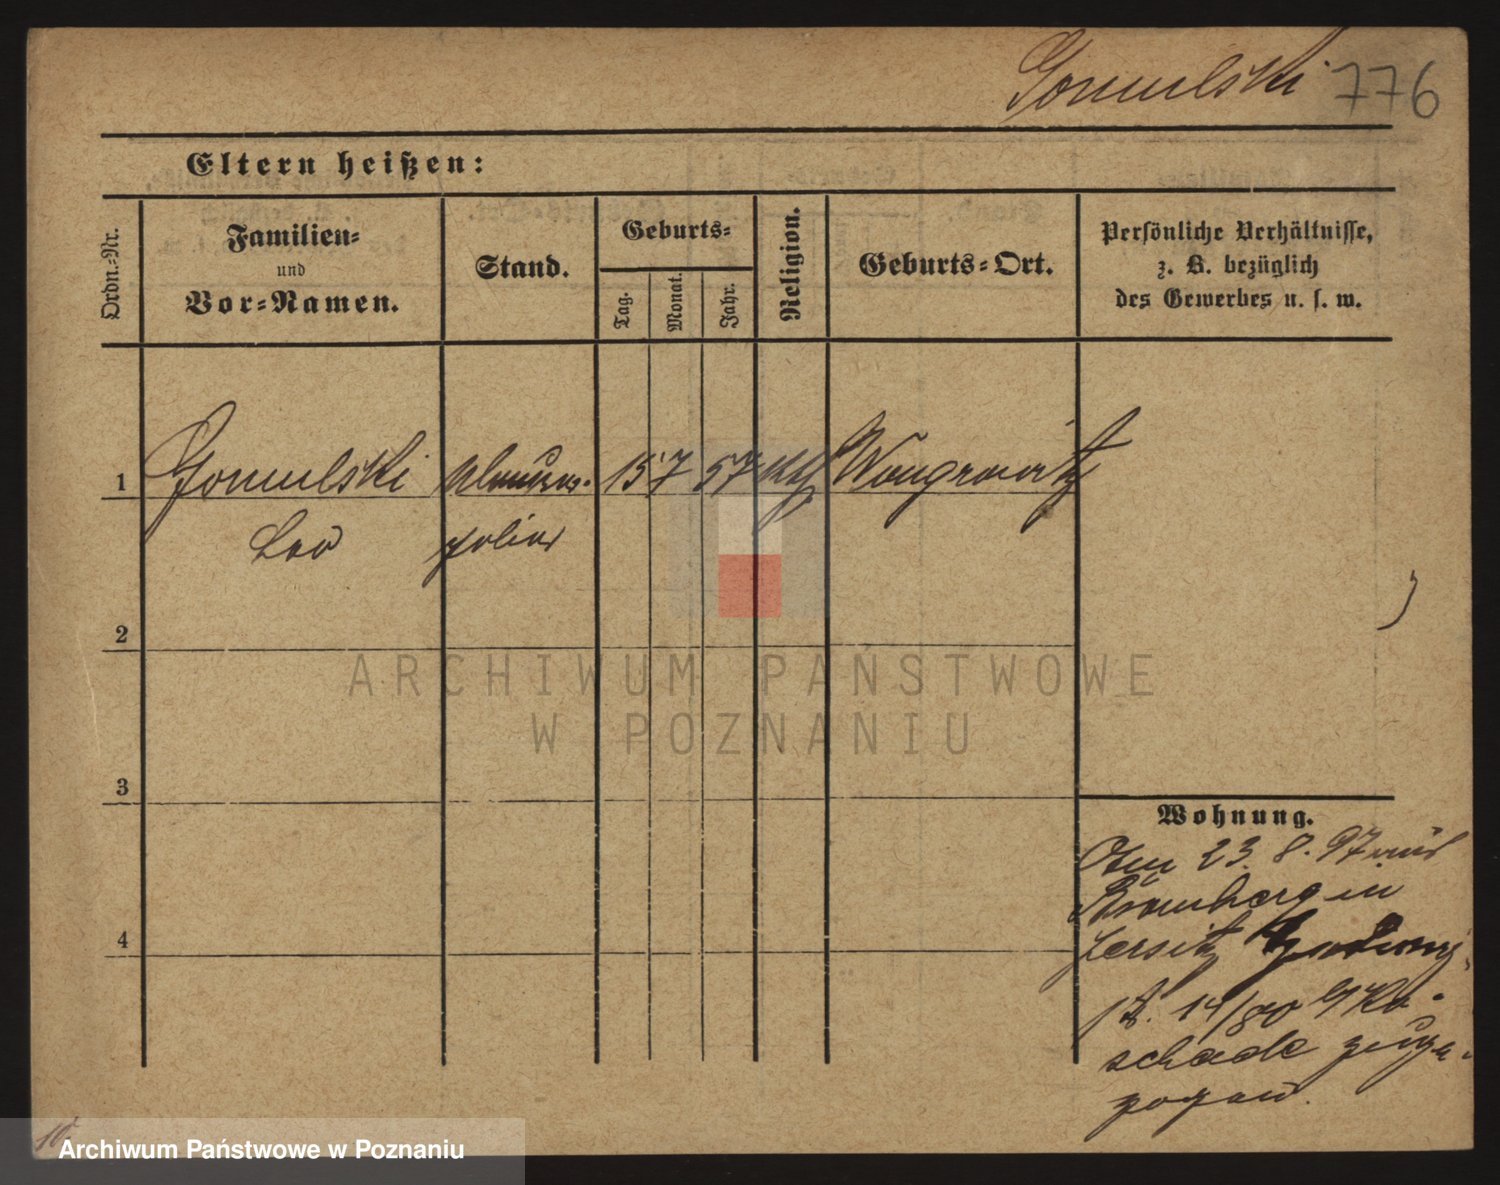 Gomulski 776
Eltern heißen:
Ordn.-Nr.
Familien-
und
Vor-Namen.
Stand.
Geburts-
Tag.
Monat.
Jahr.
Religion.
Geburts-Ort.
Persönliche Verhältnisse,
z. B. bezüglich
des Gewerbes u. s. w.
1 Gomulski 15 7 57 kth Wongrowitz
Leo polier
2
3
4
Wohnung.
23. 8. 97 aus
Bromberg in
Jersitz
14/80
schade zuge-
zogen.
10.
ARCHIWUM PAŃSTWOWE
W POZNANIU
Archiwum Państwowe w Poznaniu